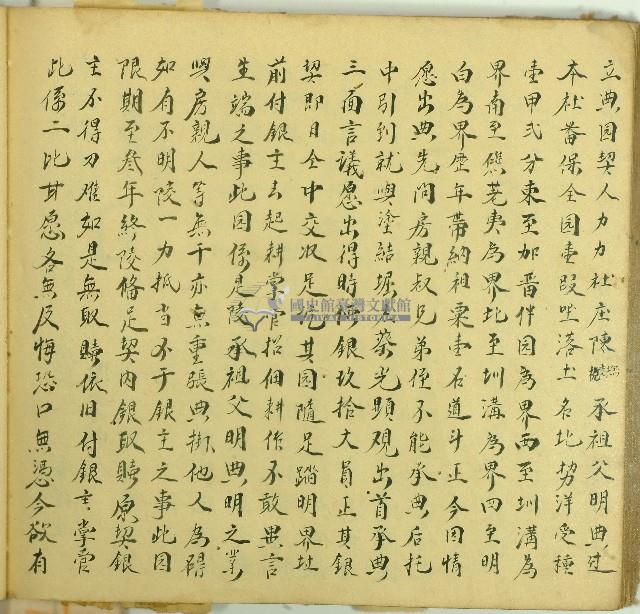 立典园契人力力社庄陳 承祖父明典过
本社蕃保全园壹段坐落土名北势洋受種
壹甲弍分東至加晋伴园為界西至圳溝為
界南至 荖夷為界北至圳溝為界四至明
白為界歴年帶納祖粟壹石道斗正今因情
愿出典先问房親叔兄弟侄不能承典后托
中引到就與塗結堀 蔡光顕观出首承典
三面言議愿出得時 銀玖拾大員正其銀
契即日仝中交收足 其园隨足踏明界址
前付銀主去起耕掌管招佃耕作不敢異言
生端之事此园係是陵承祖父明典明之業
與房親人等無干亦無重張典掛他人為碍
如有不明陵一力抵当不干銀主之事此园
限期至叁年終陵俻足契内銀取贖原契銀
主不得刁难如是無取贖依旧付銀主掌管
此係二比甘愿各無反悔恐口無憑今欲有
國史館臺灣文獻館